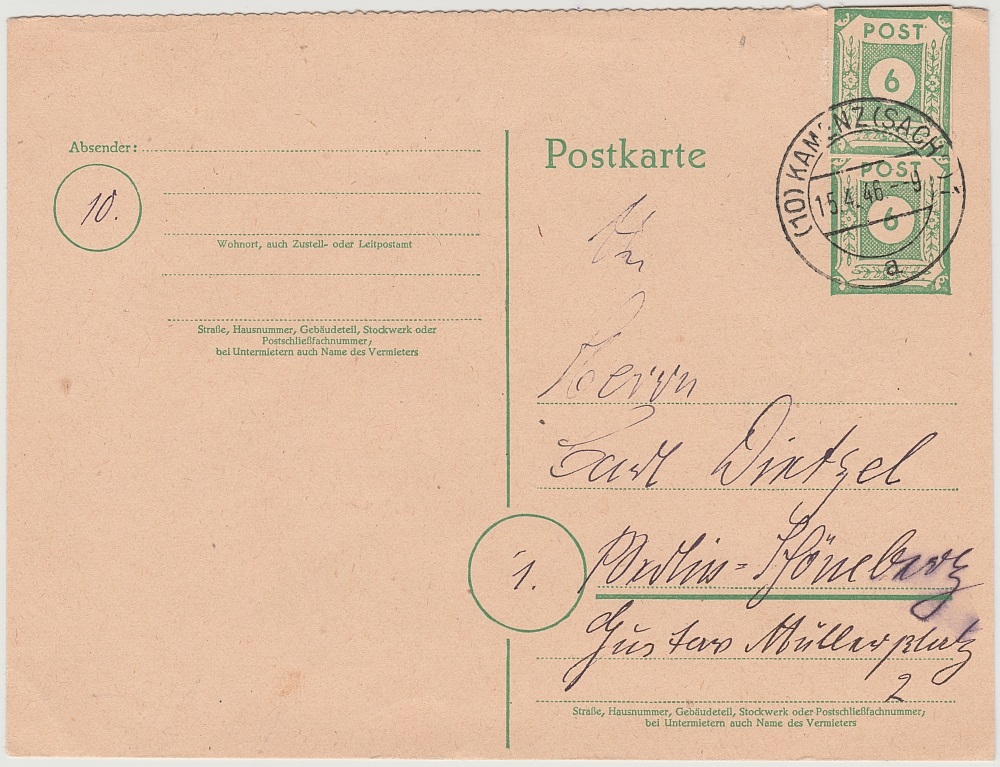 POST
6
POST
6
(10) KAMENZ (SACHS)
15.4.46 - 9
a
Absender:
10.
Wohnort, auch Zustell- oder Leitpostamt
Straße, Hausnummer, Gebäudeteil, Stockwerk oder
Postschließfachnummer;
bei Untermietern auch Name des Vermieters
Postkarte
An
Herrn
Carl Dietzel
1.
Berlin=Schöneberg
Gustav Müllerplatz
2
Straße, Hausnummer, Gebäudeteil, Stockwerk oder Postschließfachnummer;
bei Untermietern auch Name des Vermieters